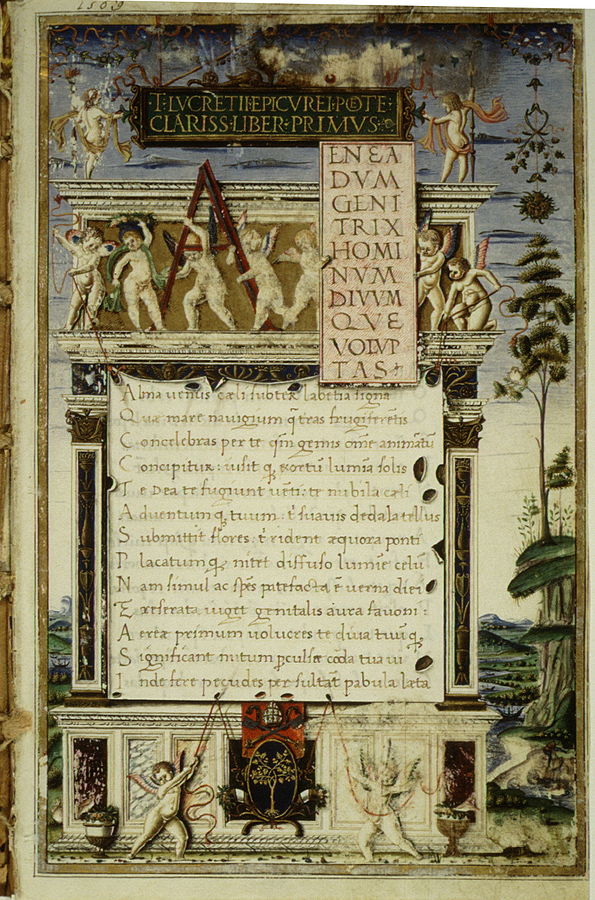 1569
·T·LVCRETII·EPICVREI·POETE·
CLARISS·LIBER·PRIMVS·
A
ENEA
DVM
GENI
TRIX
HOMI
NVM
DIVVM
QVE
VOLVP
TAS
Alma uenus cæli subter labētia signa
Quæ mare nauigium q̄ tras frugiferētis
Concelebras per te qm̄ genus om̄e animātū
Concipitur: uisit q̨ exortū lumīa solis
Te Dea te fugiunt uēti: te nubila cæli
Aduentum q̨ tuum: t̄ suauis dedala tellus
Submittit flores: t̄ rident æquora ponti
Placatum q̨ nitet diffuso lumīe celū
Nam simul ac spēs patefacta ē uerna diei
Et reserata uiget genitalis aura fauoni:
Aereæ primum uolucres te diua tuū q̨
Significant nutum pculsæ corda tua ui
Inde fere pecudes per sultāt pabula læta